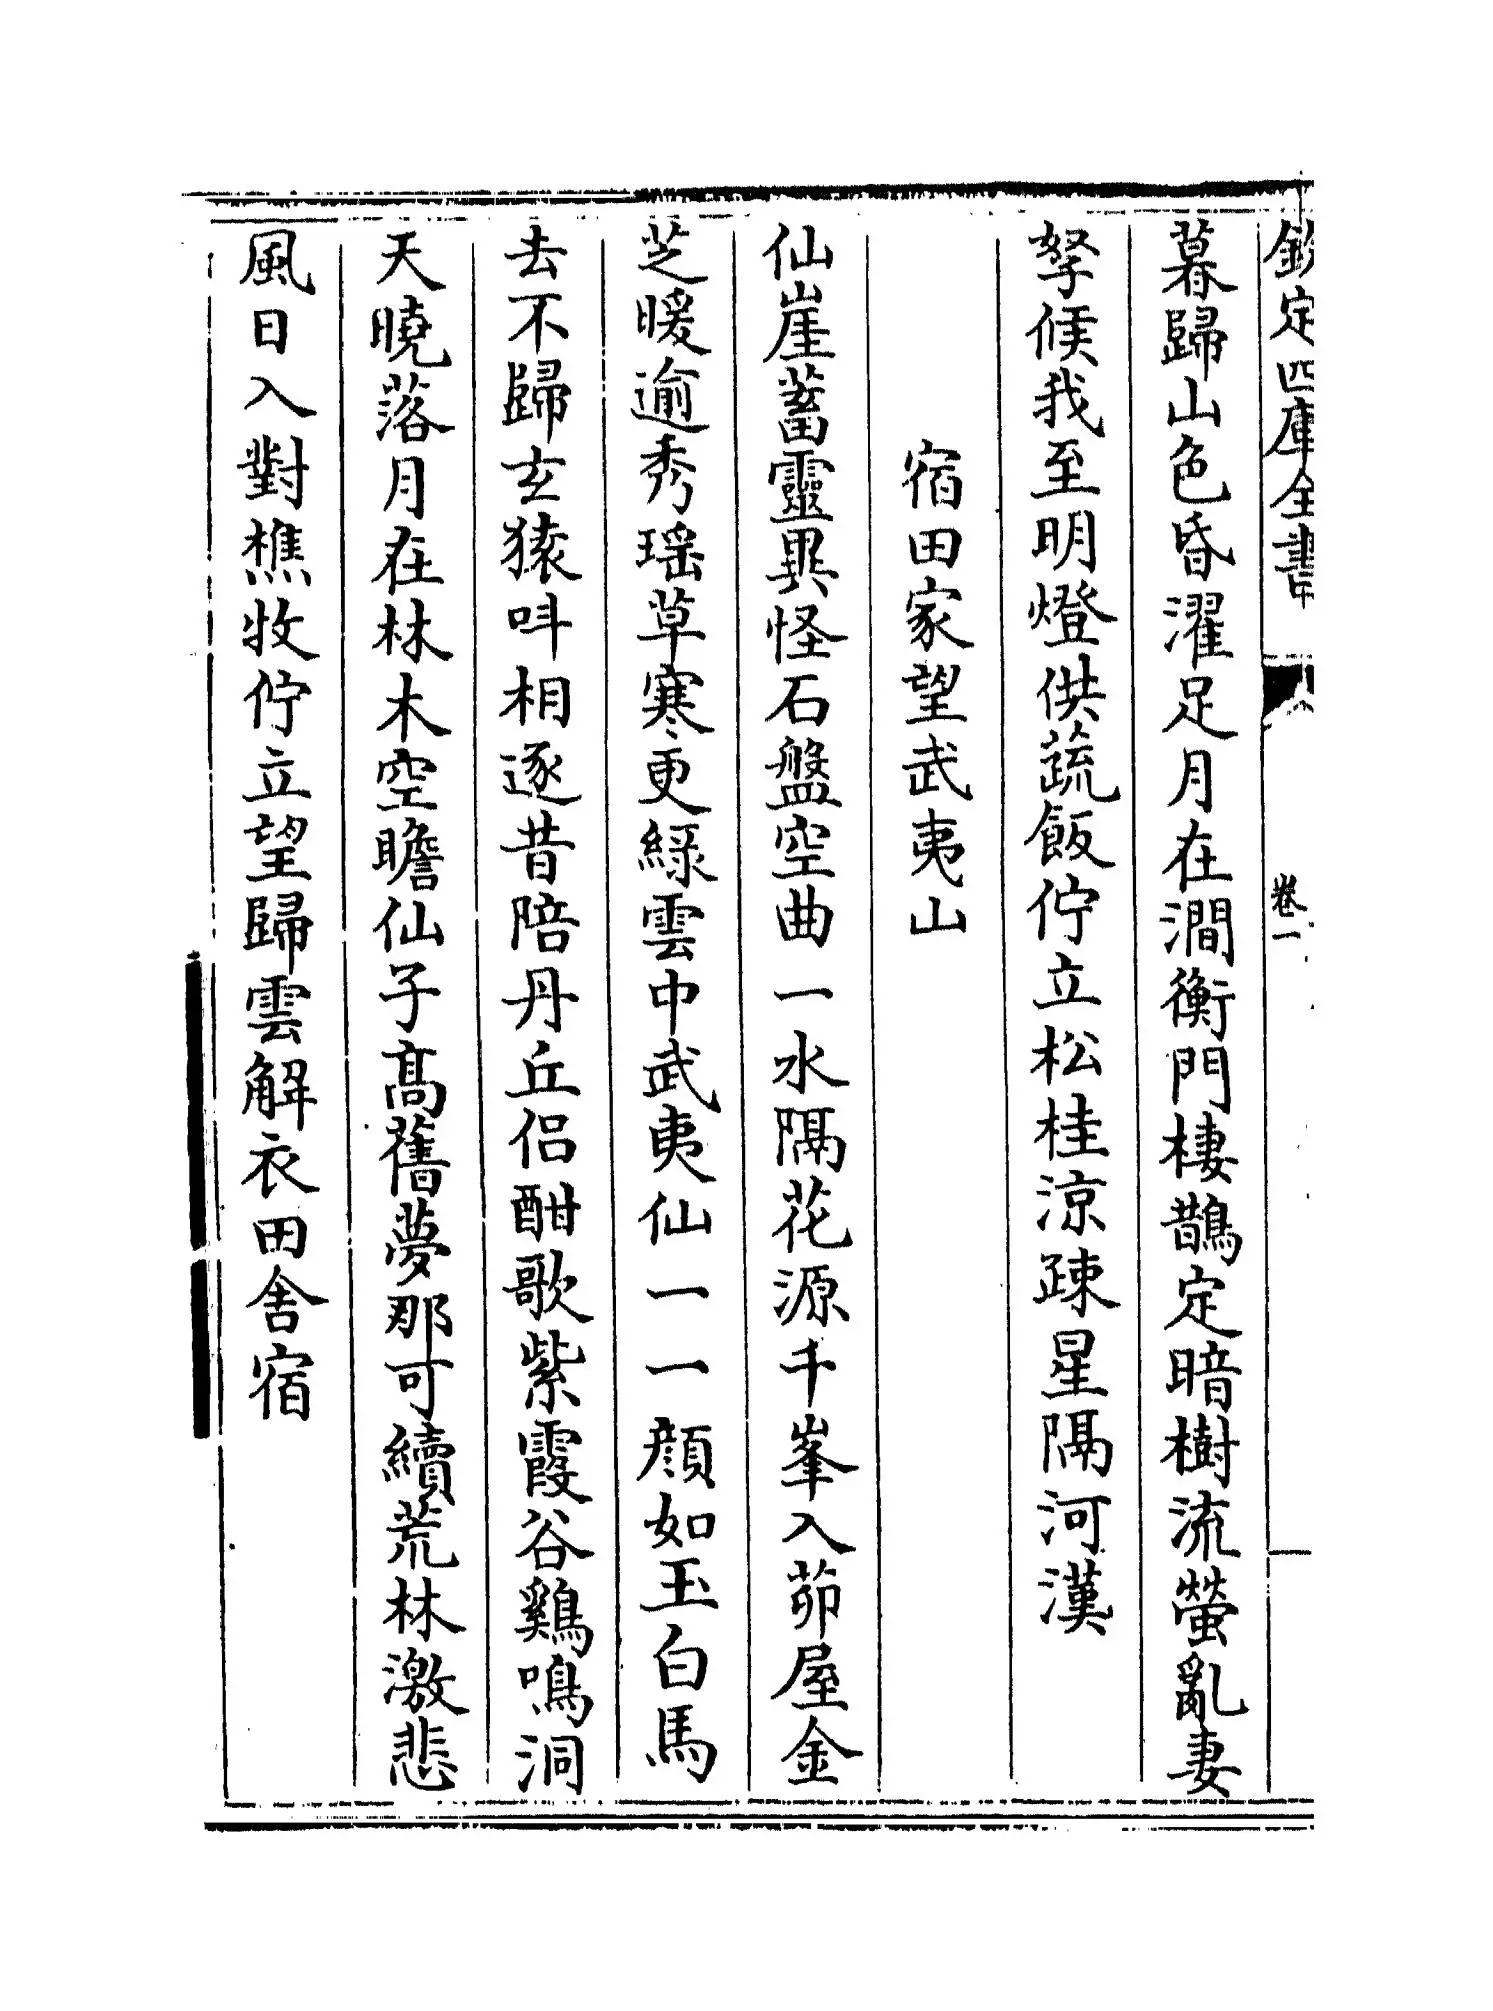 欽定四庫全書
卷一
暮歸山色昏濯足月在澗衡門棲鵲定暗樹流螢亂妻
孥候我至明燈供蔬飯佇立松桂涼疎星隔河漢
宿田家望武夷山
仙崖蓄靈異怪石盤空曲一水隔花源千峯入茆屋金
芝暖逾秀瑶草寒更緑雲中武夷仙一一顔如玉白馬
去不歸玄猿呌相逐昔陪丹丘侣酣歌紫霞谷鷄鳴洞
天曉落月在林木空瞻仙子髙舊夢那可續荒林激悲
風日入對樵牧佇立望歸雲解衣田舍宿